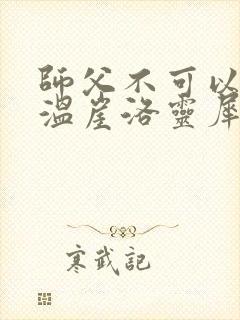 師父不可以
溫崖洛靈犀
寒武記